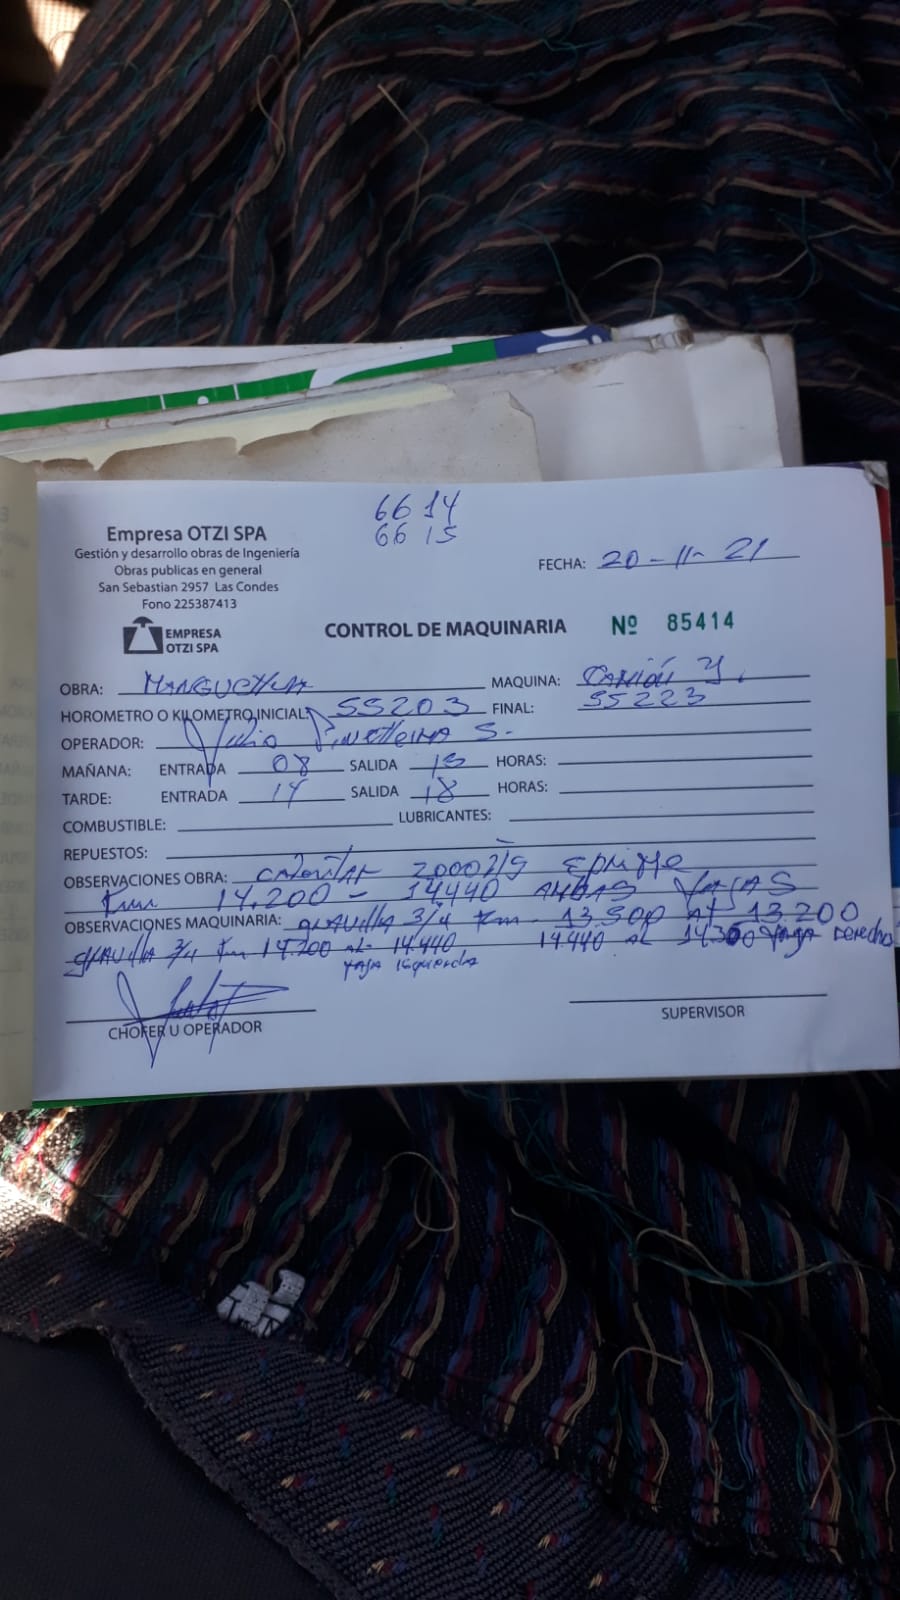 6614
6615
Empresa OTZI SPA
Gestión y desarrollo obras de Ingeniería
Obras publicas en general
San Sebastian 2957 Las Condes
Fono 225387413
EMPRESA
OTZI SPA
FECHA: 20-11-21
CONTROL DE MAQUINARIA Nº 85414
OBRA: MAQUINA: CAMIÓN
HOROMETRO O KILOMETRO INICIAL: 55203 FINAL: 55223
OPERADOR: Julio S.
MAÑANA: ENTRADA 08 SALIDA 13 HORAS:
TARDE: ENTRADA 14 SALIDA 18 HORAS:
COMBUSTIBLE: LUBRICANTES:
REPUESTOS:
OBSERVACIONES OBRA:
Km 14.200 - 14440 AMBAS
OBSERVACIONES MAQUINARIA: GRAVILLA 3/4 Km 13.500 AL 13.200
GRAVILLA 3/4 Km 14.200 AL 14.440 14.440 AL Derecha
Izquierda
CHOFER U OPERADOR
SUPERVISOR